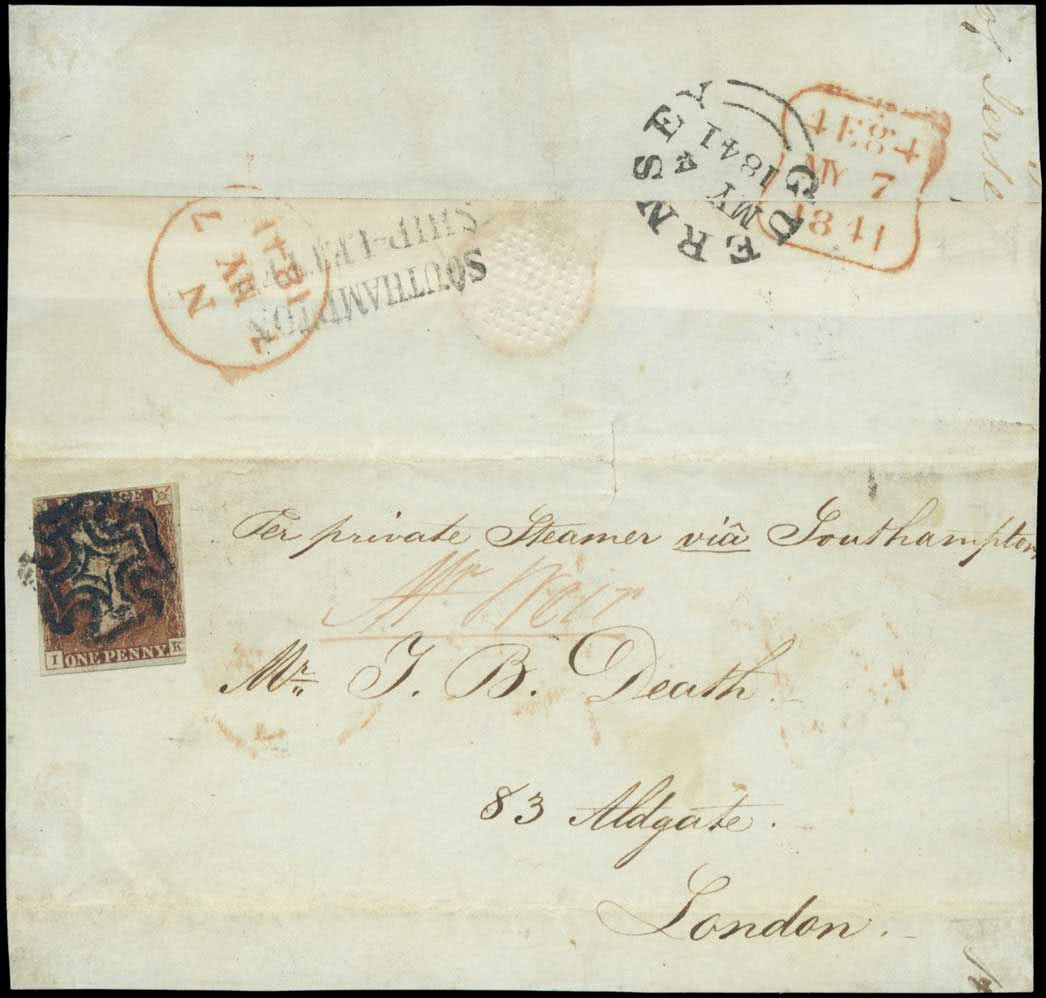 of Jerse
4E84
MY 7
1841
GUERNSEY
MY 4
1841
SOUTHAMPTON
SHIP-LETTER
N
7 MY 7
1841
POSTAGE
I ONE PENNY. K
Per private Steamer viâ Southampton
Mr Weir
Mr. J. B. Death.
83 Aldgate.
London.